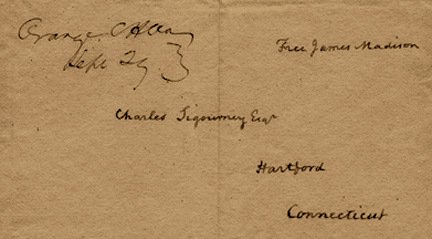 Orange CHVa
Sept 29
Free James Madison
Charles Sigourney Esqr
Hartford
Connecticut